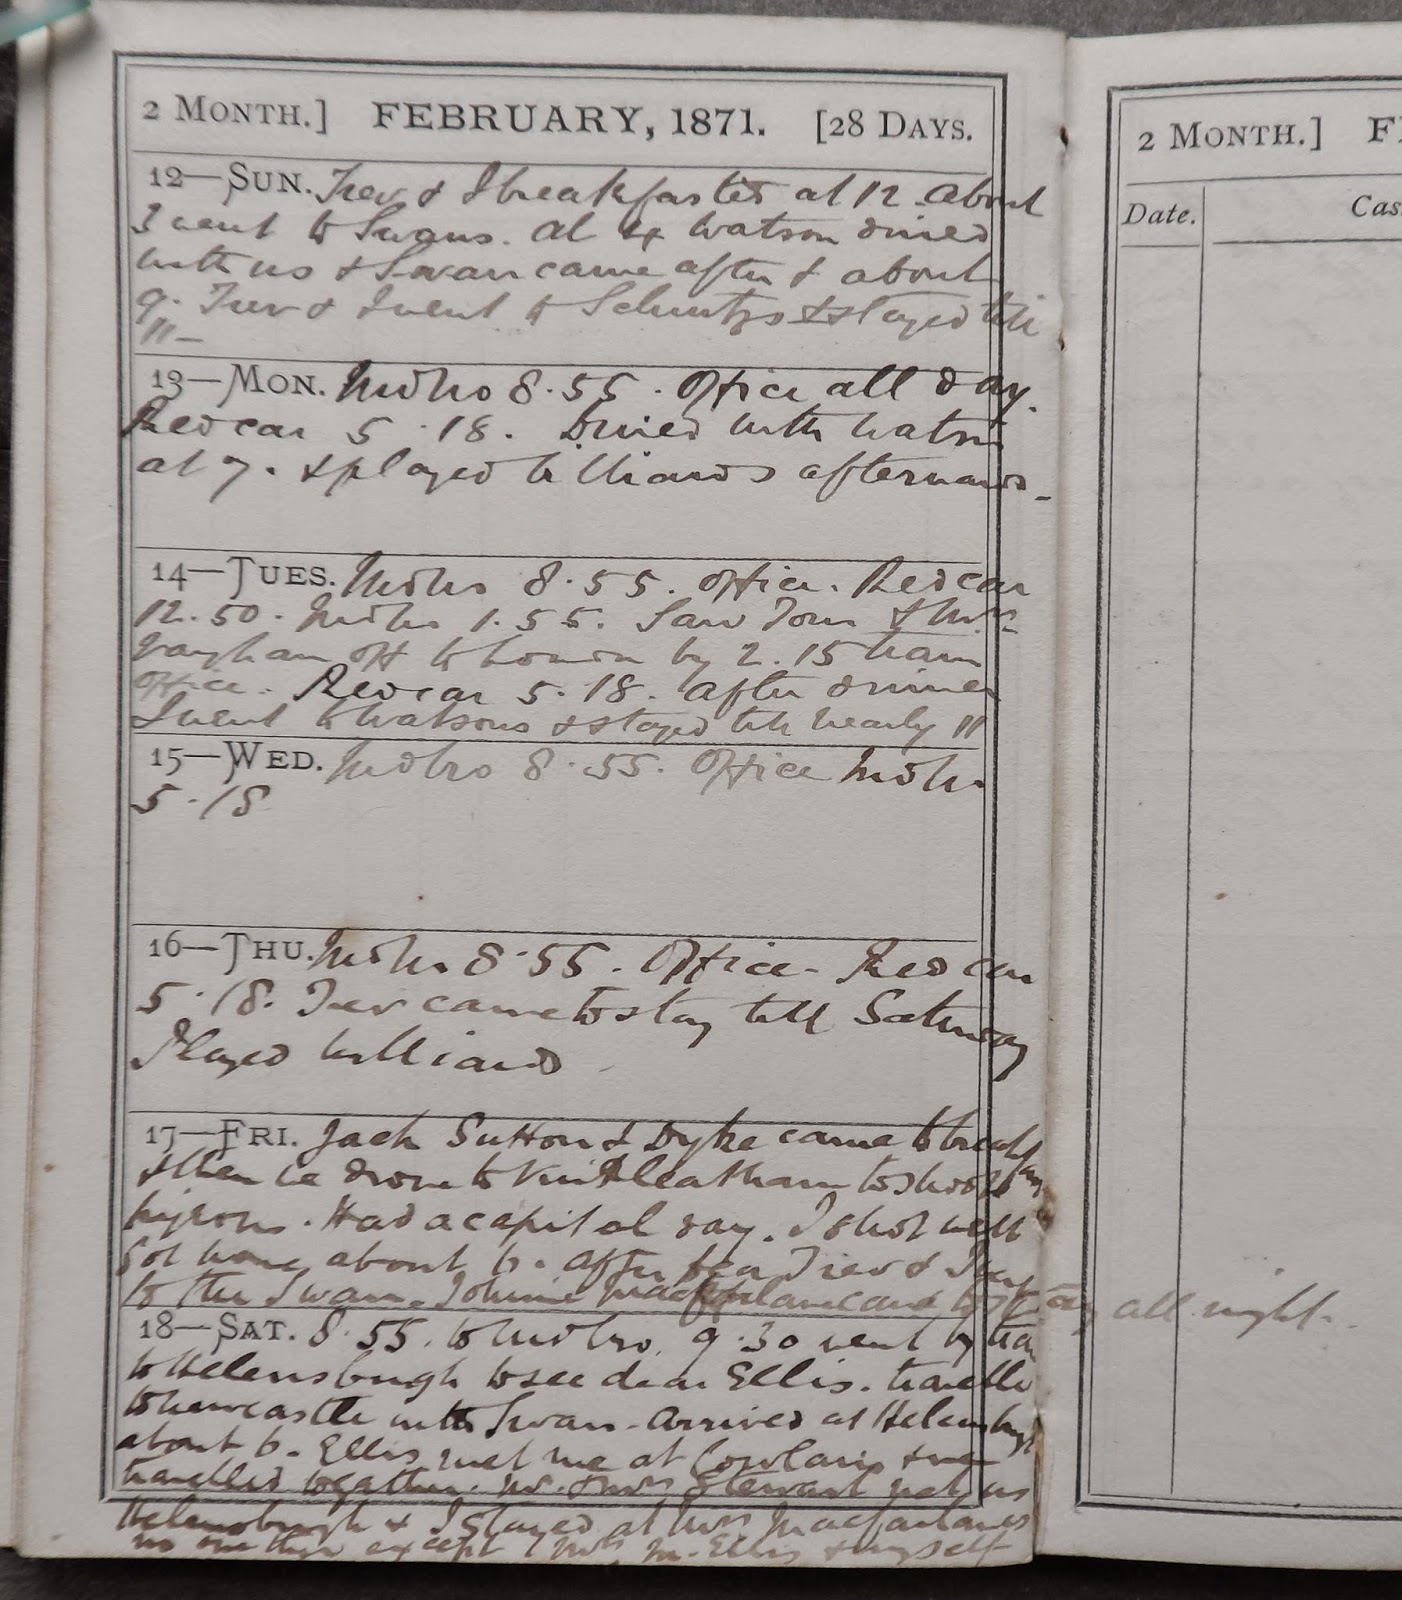 2 MONTH.] FEBRUARY, 1871. [28 DAYS.
12—SUN. Trev & I breakfasted at 12. About
I went to Swans. At 4 Watson dined
with us & Swan came after & about
9. Trev & I went to Schmitzs & stayed till
11—
13—MON. Mdbro 8.55. Office all day.
Redcar 5.18. Dined with Watson
at 7. & played billiards afterwards—
14—TUES. Mdbro 8.55. Office. Redcar
12.50. Mdbro 1.55. Saw Tom & Mrs
Vaughan off to London by 2.15 train
Office. Redcar 5.18. After dinner
I went to Watsons & stayed till nearly 11
15—WED. Mdbro 8.55. Office Mdbr.
5.18
16—THU. Mdbro 8.55. Office. Redcar
5.18. Trev came to stay till Saturday
Played billiards
17—FRI. Jack Sutton & Dyke came to breakfast
& then we drove to Kirkleatham to shoot
pigeons. Had a capital day. I shot well
Got home about 6. After tea Trev & I went
to the Swans. Johnie Macfarlane came to stay all night.
18—SAT. 8.55. to Mdbro. 9.30 went by train
to Helensburgh to see dear Ellis. travelled
to Newcastle with Swan. Arrived at Helensburgh
about 6. Ellis met me at Cowlairs & we
travelled together. Mr. & Mrs Stewart met us
Helensburgh & I stayed at Mrs Macfarlanes
no one there except Mrs M. Ellis & myself
2 MONTH.] F
Date.
Cas